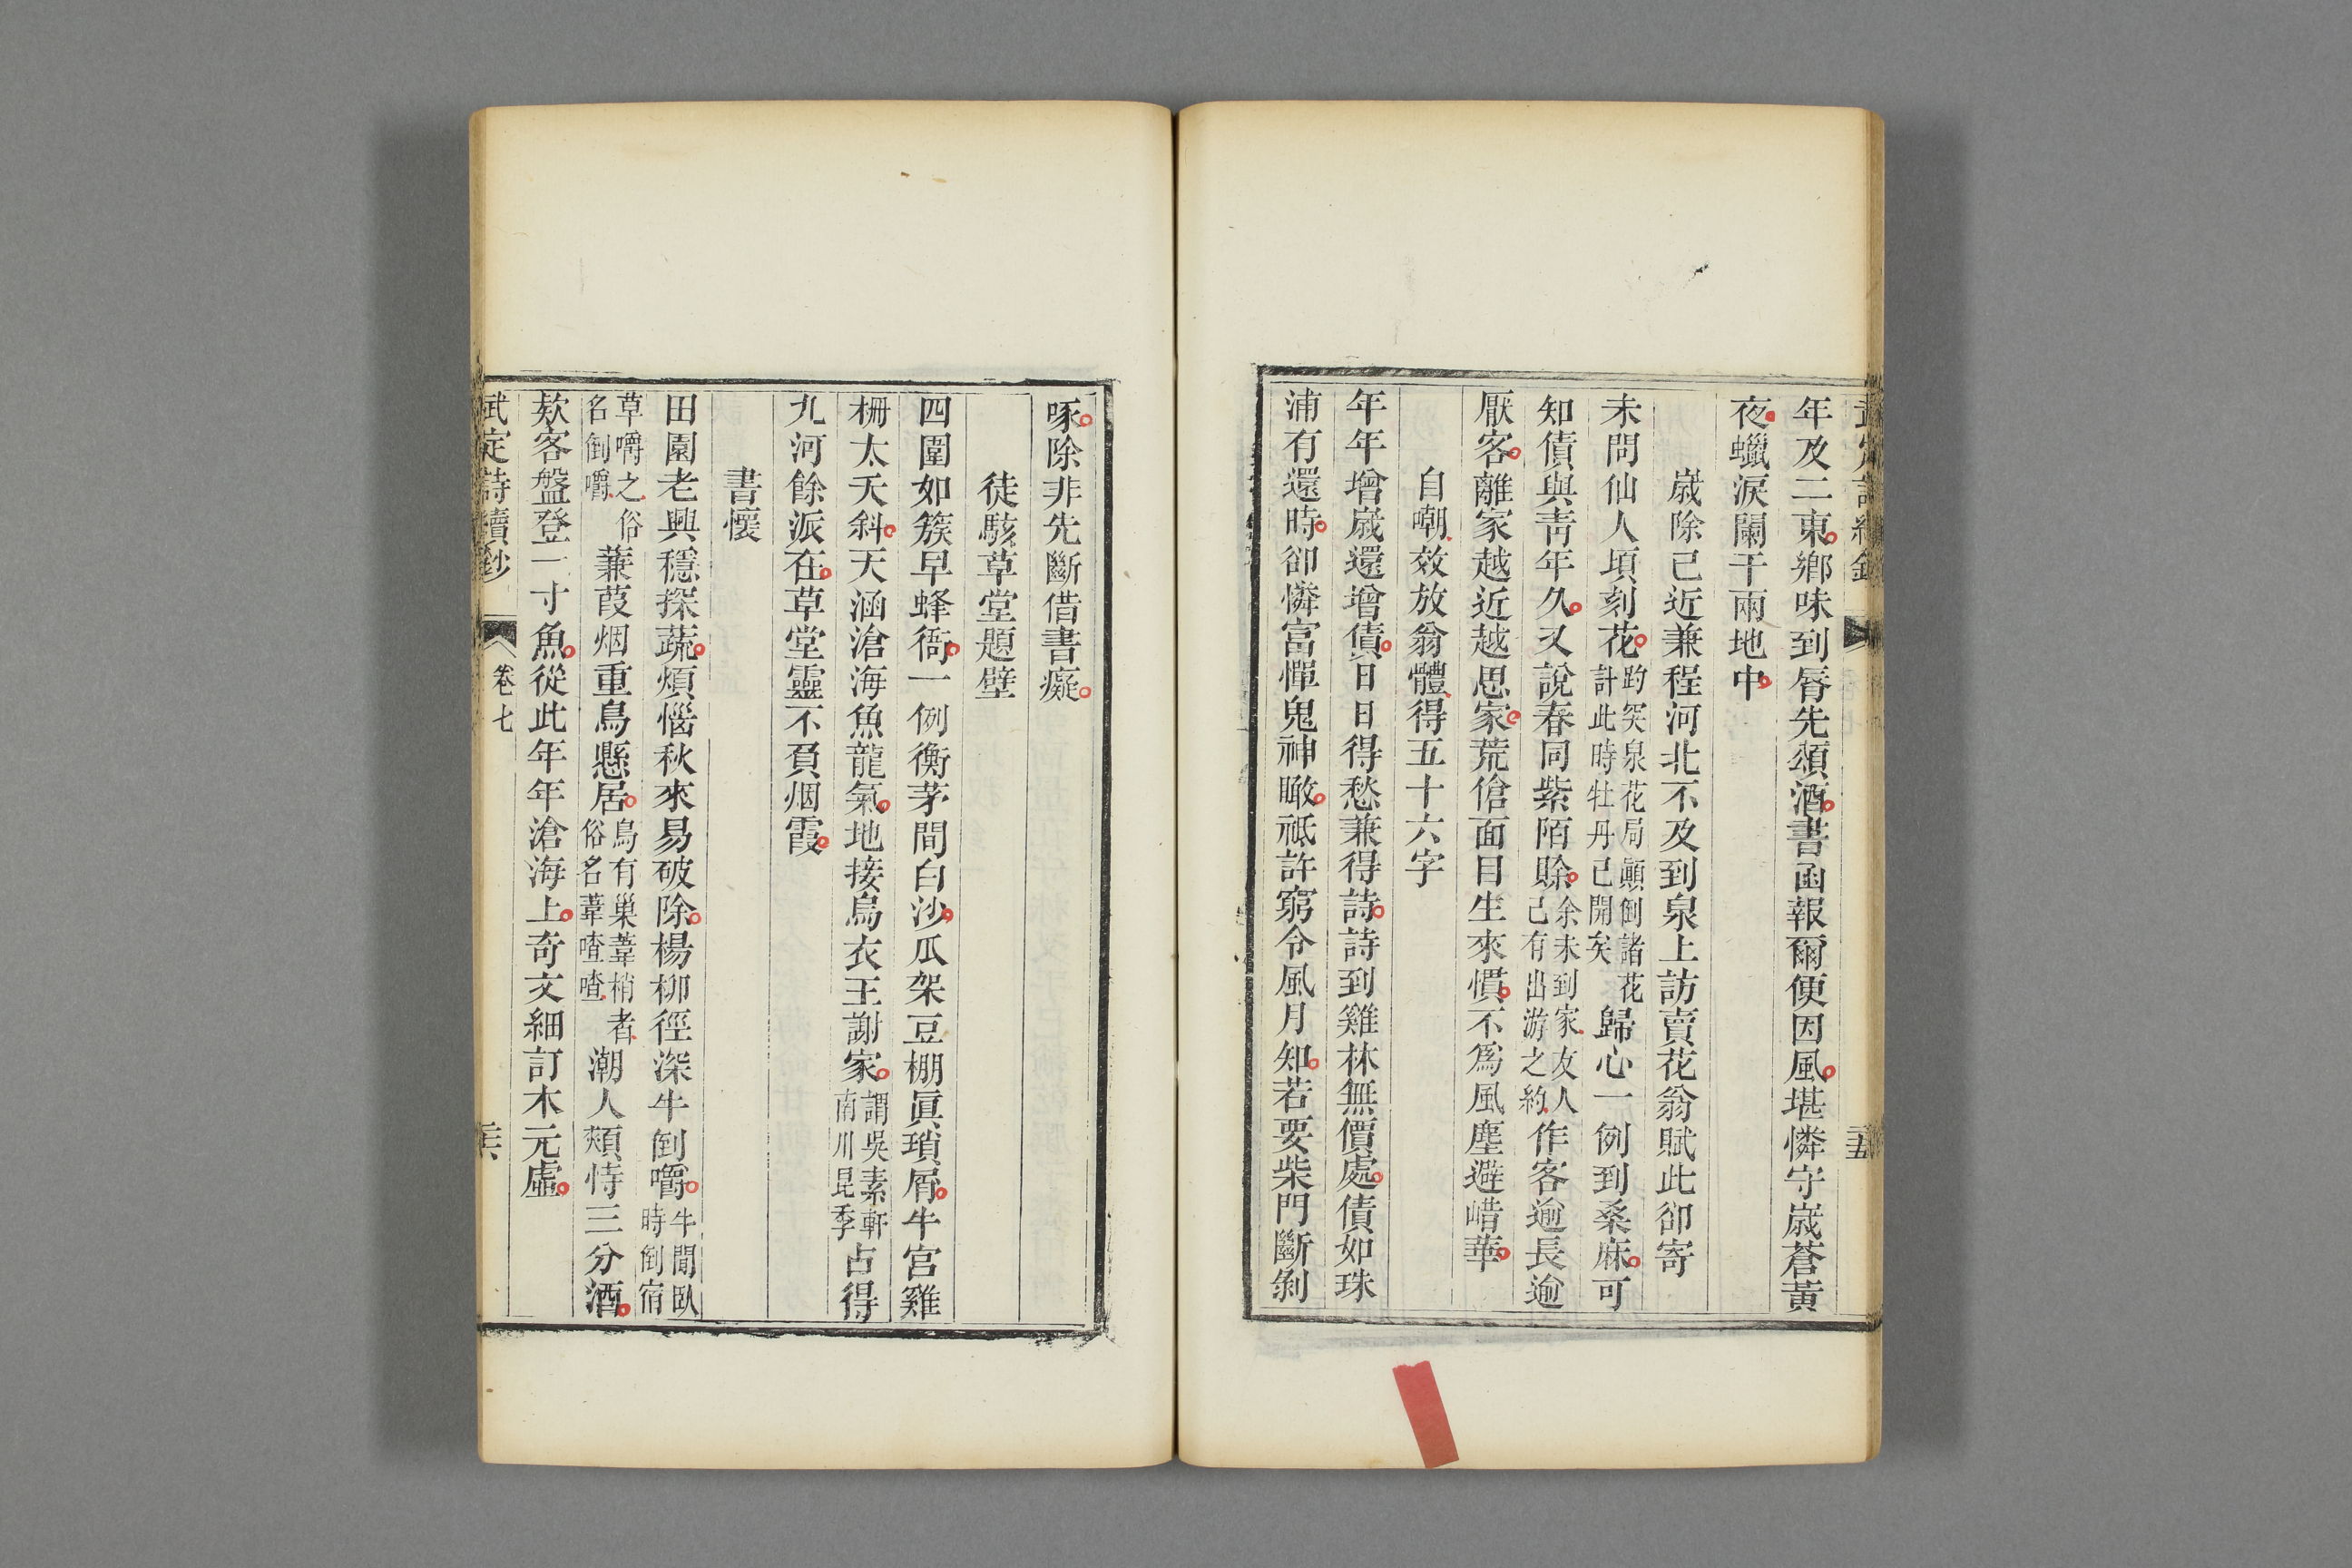 年及二東鄉味到脣先頌酒書函報爾便因風堪憐守歲蒼黃
夜蠟淚闌干兩地中
歲除己近兼程河北不及到泉上訪賣花翁賦此卻寄
未問仙人頃刻花趵突泉花局顚倒諸花計此時牡丹已開矣歸心一例到桑麻可
知債與青年久又說春同紫陌賒余未到家友人己有出游之約作客逾長逾
厭客離家越近越思家荒傖面目生來慣不爲風塵避嵴華
自嘲效放翁體得五十六字
年年增歲還增債日日得愁兼得詩詩到雞林無價處債如珠
浦有還時卻憐富憚鬼神瞰祗許窮令風月知若要柴門斷剝
啄除非先斷借書癡
徒駭草堂題壁
四圍如簇早蜂衙一例衡茅間白沙瓜架豆棚眞瑣屑牛宮雞
柵太夭斜天涵滄海魚龍氣地接烏衣王謝家謂吳素軒南川昆季占得
九河餘派在草堂靈不負烟霞
書懷
田園老興穩探蔬煩惱秋來易破除楊柳徑深牛倒嚼牛閒臥時倒宿
草嚼之俗名倒嚼蒹葭烟重鳥懸居鳥有巢葦梢者俗名葦喳喳潮人頰恃三分酒
欵客盤登一寸魚從此年年滄海上奇文細訂木元虛
武定詩續鈔 卷七